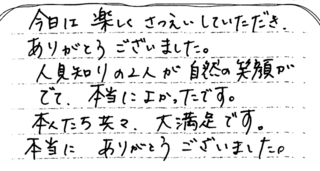 今日は 楽しく さつえいしていただき、
ありがとう ございました。
人見知りの2人が 自然の笑顔が
でて、本当によかったです。
本人たち共々、大満足です。
本当に ありがとう ございました。